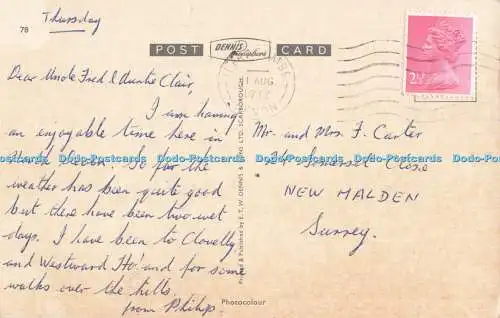 Thursday
78
POST DENNIS CARD
AUG
2½
Dear Uncle Fred & Auntie Clair,
I am having
an enjoyable time here in
North Devon. So far the
weather has been quite good
but there have been two wet
days. I have been to Clovelly
and Westward Ho! and for some
walks over the hills.
from Philip.
Printed & Published by E.T.W. DENNIS & SONS LTD. SCARBOROUGH
Mr. and Mrs. F. Carter
24 Somerset Close
NEW MALDEN
Surrey.
Photocolour
Dodo-Postcards Dodo-Postcards Dodo-Postcards Dodo-Postcards